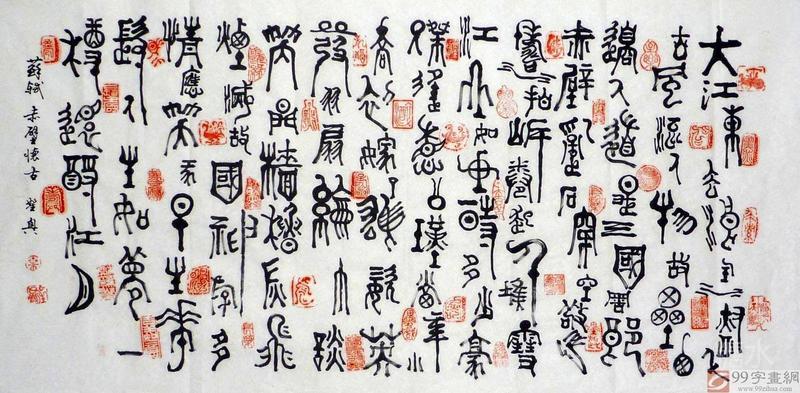 大江東去浪淘盡
古風流人物故壘西
邊人道是三國周郎
赤壁亂石穿空驚
濤拍岸卷起千堆雪
江山如畫一時多少豪
傑遙想公瑾當年小
喬初嫁了雄姿英
發羽扇綸巾談
笑間檣櫓灰飛
煙滅故國神遊多
情應笑我早生華
髮人生如夢一
樽還酹江月
蘇軾 赤壁懷古
99字畫網
www.99zihua.com